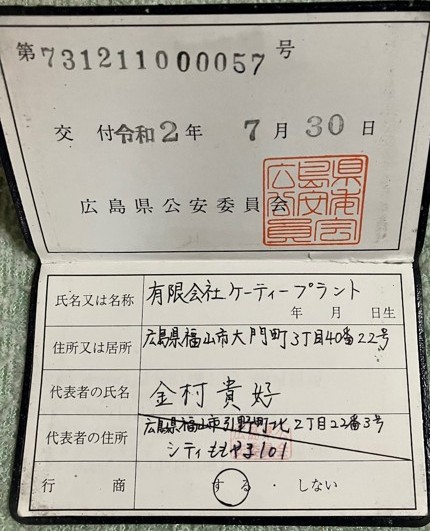 第731211000057号
交付令和2年7月30日
広島県公安委員会
広島県公安委員会
氏名又は名称 有限会社ケーティープラント
年 月 日生
住所又は居所 広島県福山市大門町3丁目40番22号
代表者の氏名 金村貴好
代表者の住所 広島県福山市引野町北2丁目22番3号
シティももやま101
行商 する・しない